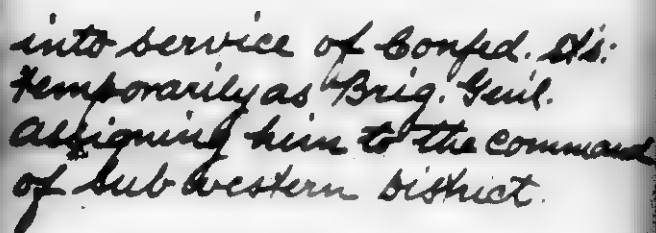 into service of Confed. Sts.
temporarily as Brig. Genl.
assigning him to the command
of Sub Western District.